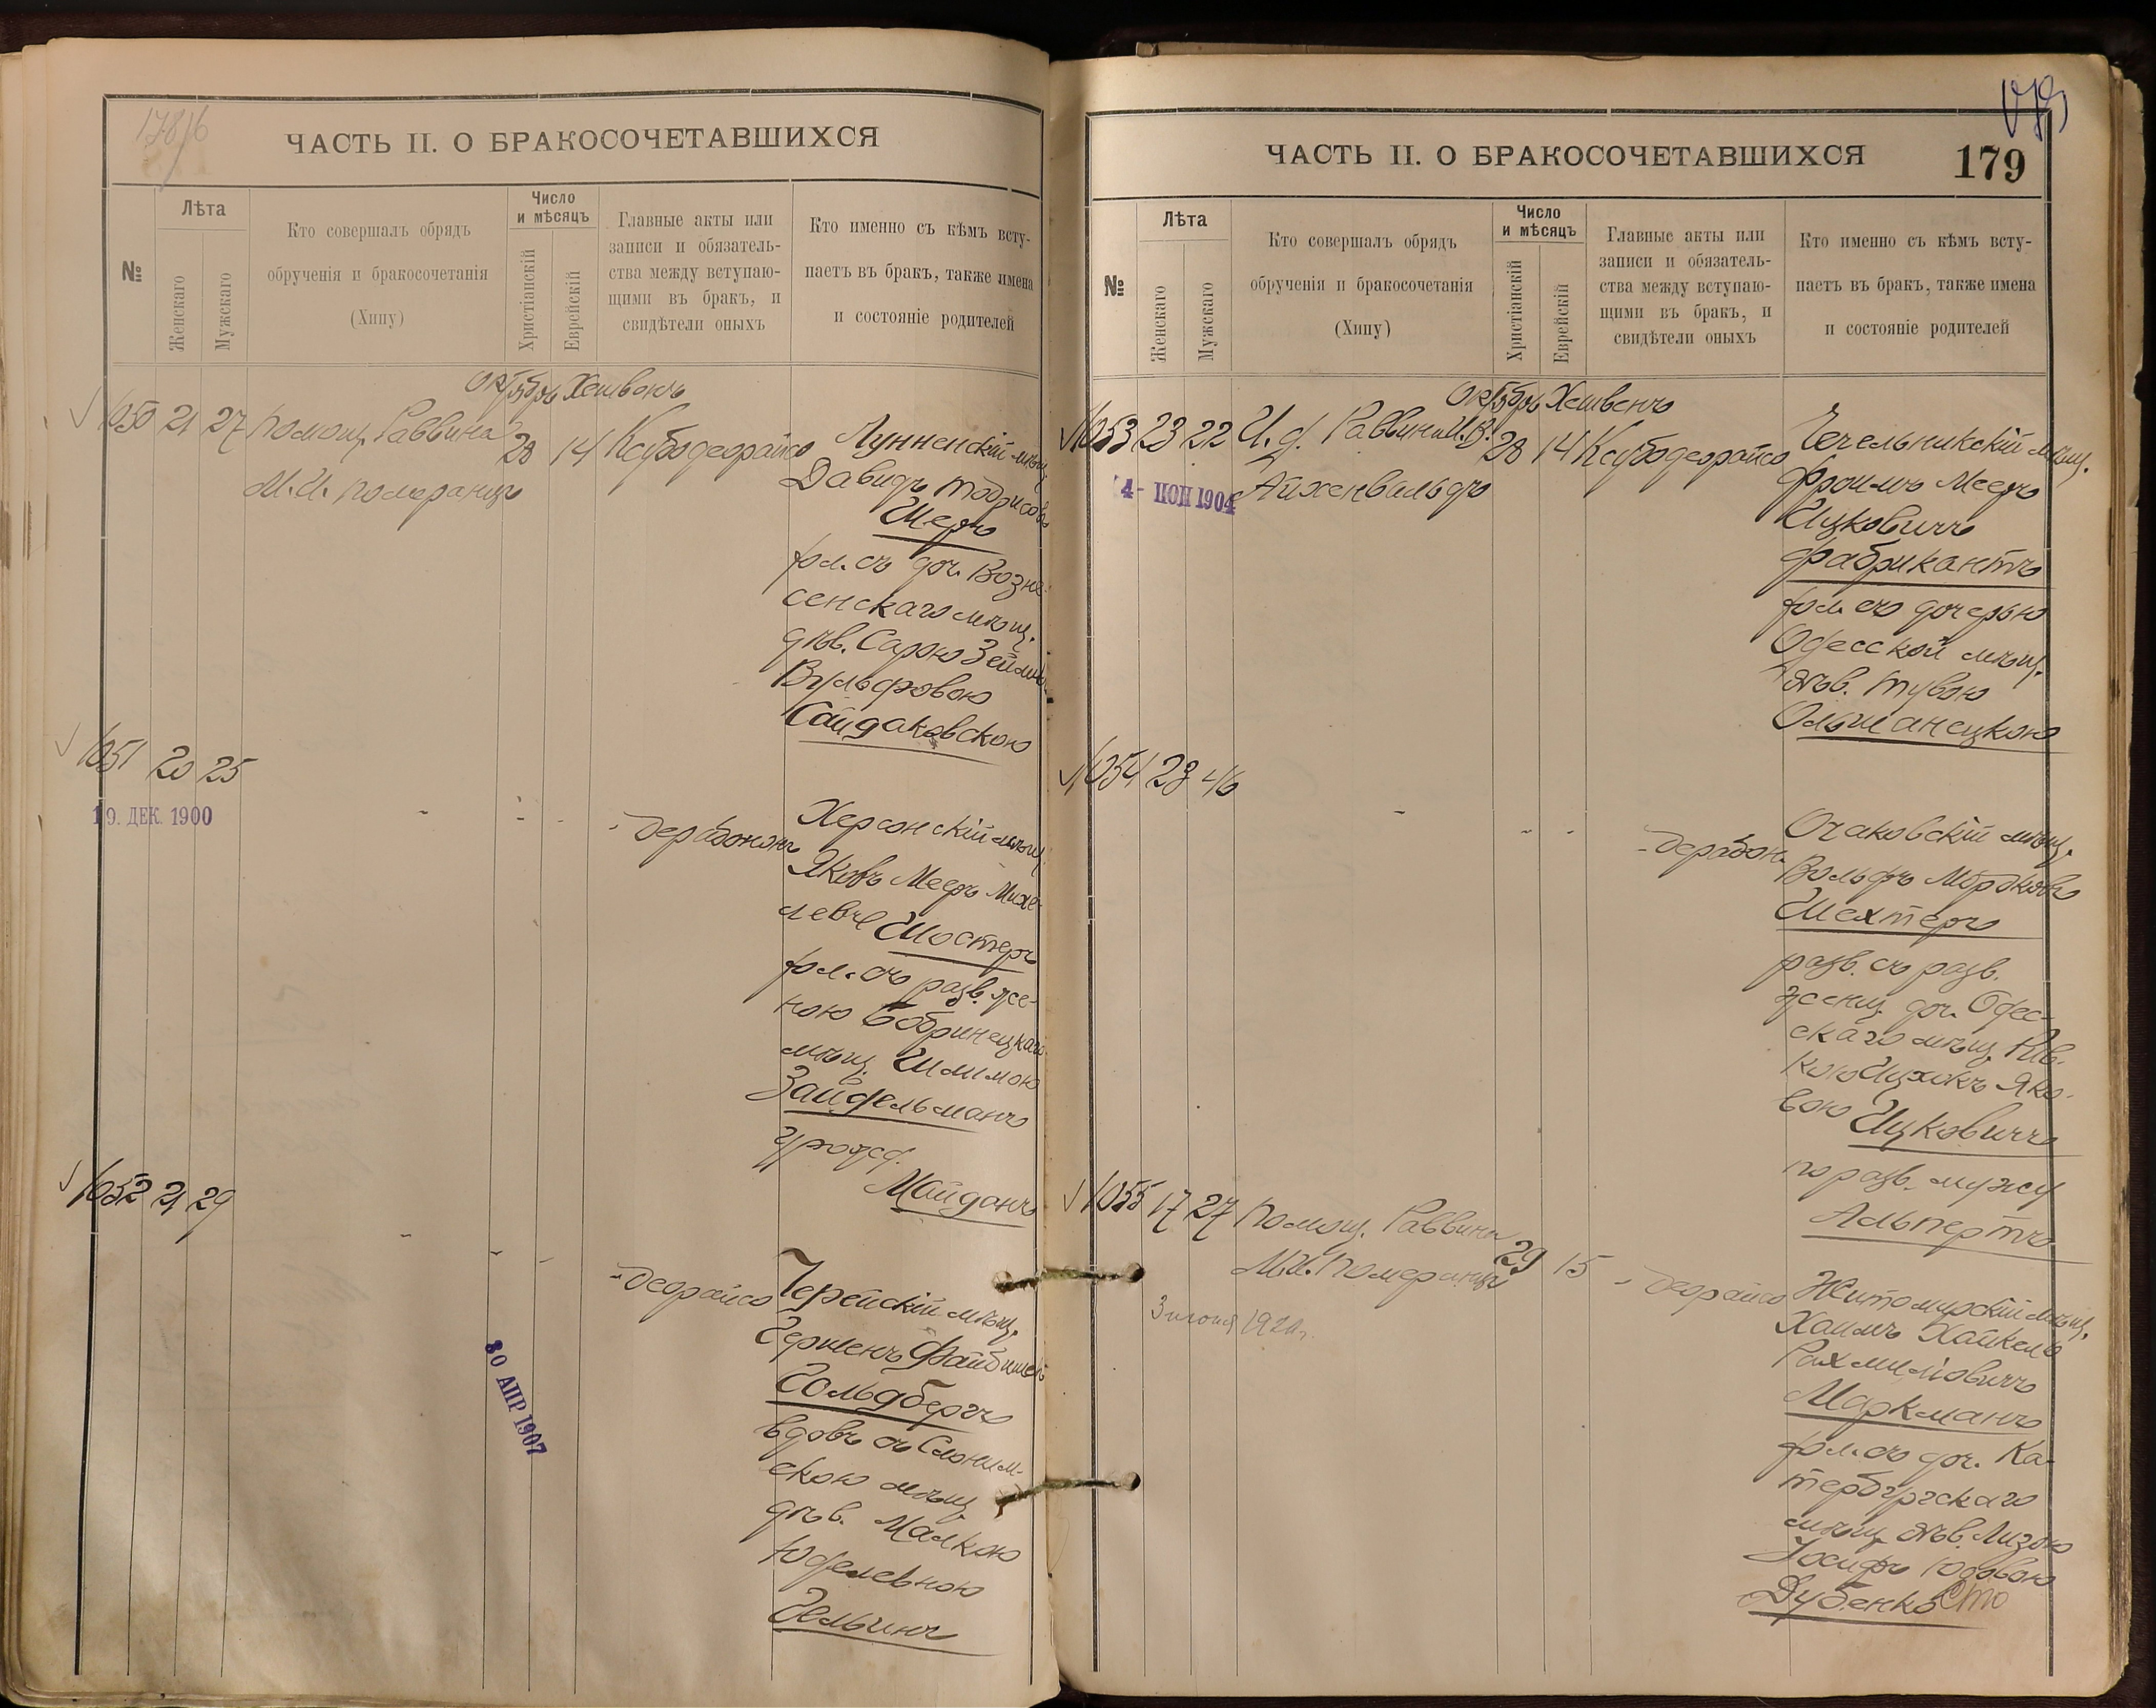 178/б
ЧАСТЬ II. О БРАКОСОЧЕТАВШИХСЯ
№
Лѣта
Женскаго
Мужскаго
Кто совершалъ обрядъ
обрученія и бракосочетанія
(Хипу)
Число
и мѣсяцъ
Христіанскій
Еврейскій
Главные акты или
записи и обязатель-
ства между вступаю-
щими въ бракъ, и
свидѣтели оныхъ
Кто именно съ кѣмъ всту-
паетъ въ бракъ, также имена
и состояніе родителей
Октябрь Хешвонъ
1050 21 27 Помощ. Раввина 28 14 Ксубодеорайсо
М. И. Померанцъ
Лунненскій мѣщ.
Давидъ Тодрисовъ
Шеръ
хол. съ доч. Возне-
сенскаго мѣщ.
дѣв. Сарою Зельмою
Вульфовою
Сайдаковскою
1051 20 25
19. ДЕК. 1900
- - - - дерабононъ
Херсонскій мѣщ.
Яковъ Мееръ Михе-
левъ Шостеръ
хол. съ разв. же-
ною Бобринецкаго
мѣщ. Шлимою
Зайдельманъ
урожд.
Майданъ
1052 21 29
- - - - деорайсо
30 АПР 1907
Черейскій мѣщ.
Гершенъ Файбишев.
Гольдбергъ
вдовъ съ Слоним-
скою мѣщ.
дѣв. Малкою
Юделевною
Гельчинъ
179
ЧАСТЬ II. О БРАКОСОЧЕТАВШИХСЯ 179
№
Лѣта
Женскаго
Мужскаго
Кто совершалъ обрядъ
обрученія и бракосочетанія
(Хипу)
Число
и мѣсяцъ
Христіанскій
Еврейскій
Главные акты или
записи и обязатель-
ства между вступаю-
щими въ бракъ, и
свидѣтели оныхъ
Кто именно съ кѣмъ всту-
паетъ въ бракъ, также имена
и состояніе родителей
Октябрь Хешвенъ
1053 23 22 И. д. Раввина И. В. 28 14 Ксубодеорайсо
Айхенвальдъ
4- ІЮН 1904
Чечельникскій мѣщ.
Фроимъ Мееръ
Ицковичъ
Фабрикантъ
хол. съ дочерью
Одесской мѣщ.
дѣв. Тубою
Ольшанецкою
1054 28 46
- - - - дерабон.
Очаковскій мѣщ.
Вольфъ Мордковъ
Шехтеръ
разв. съ разв.
женщ. доч. Одес-
скаго мѣщ. Рив-
кою Ицхокъ Яко-
вою Ицковичъ
по разв. мужу
Альпертъ
1055 17 27 Помощ. Раввина 29 15 - деорайсо
М. И. Померанцъ
3 июня 1921г.
Житомирскій мѣщ.
Хаимъ Хайкель
Рахмиліовичъ
Маркманъ
хол. съ доч. Ка-
тербургскаго
мѣщ. дѣв. Лизою
Іосифъ Юдовою
Дубенко